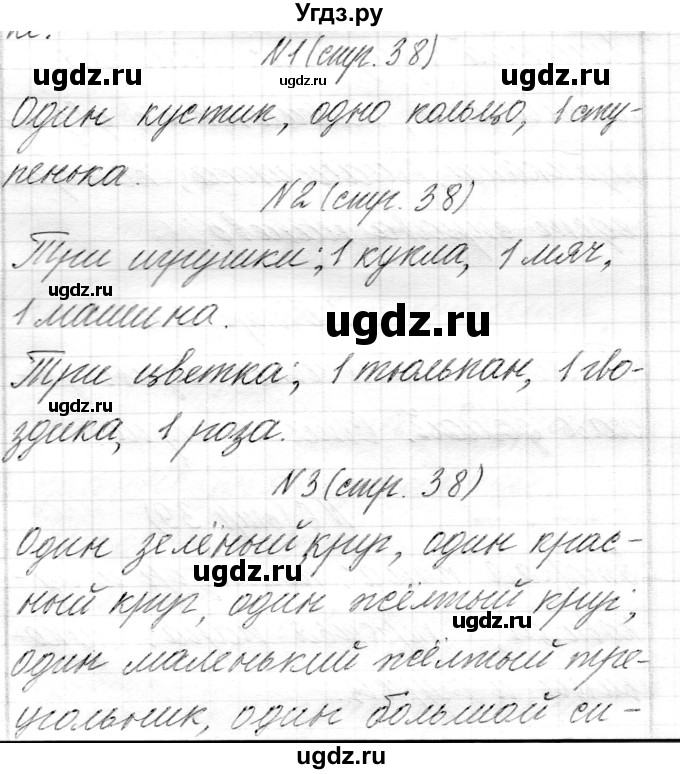 Угдз.ру
ugdz.ru
№1 (стр. 38)
ugdz.ru
ugdz.ru
Один кустик, одно кольцо, 1 сту-
пенька.
ugdz.ru
№2 (стр. 38)
Три игрушки; 1 кукла, 1 мяч,
ugdz.ru
1 машина.
ugdz.ru
Три цветка; 1 тюльпан, 1 гво-
ugdz.ru
здика, 1 роза.
№3 (стр. 38)
Один зелёный круг, один крас-
ugdz.ru
ный круг, один жёлтый круг;
ugdz.ru
один маленький жёлтый тре-
угольник, один большой си-
ugdz.ru